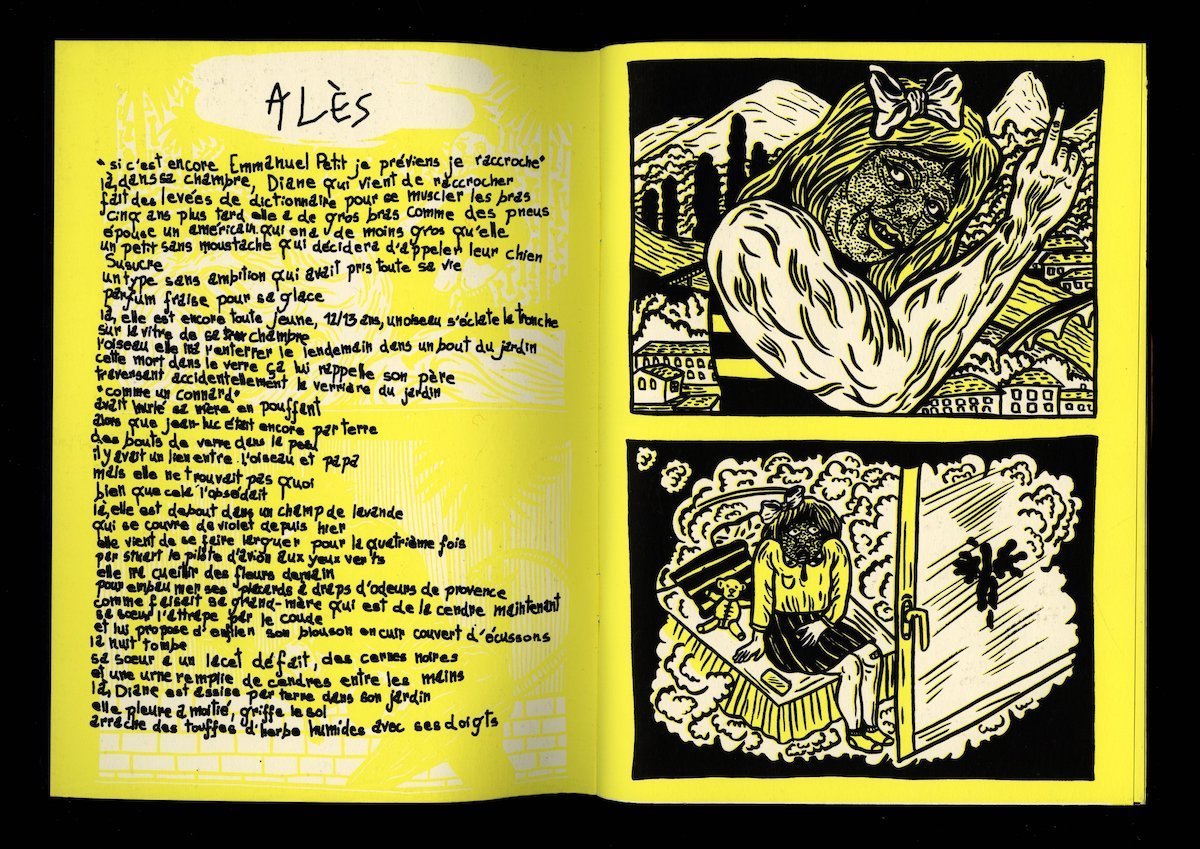 ALÈS
"si c'est encore Emmanuel Petit je préviens je raccroche"
là dans sa chambre, Diane qui vient de raccrocher
fait des levées de dictionnaire pour se muscler les bras
cinq ans plus tard elle a de gros bras comme des pneus
épouse un américain qui en a de moins gros qu'elle
un petit sans moustache qui décidera d'appeler leur chien
Susucre
un type sans ambition qui avait pris toute sa vie
parfum fraise pour sa glace
là, elle est encore toute jeune, 12/13 ans, un oiseau s'éclate la tronche
sur la vitre de sa chambre
l'oiseau elle ira l'enterrer le lendemain dans un bout du jardin
cette mort dans le verre ça lui rappelle son père
traversant accidentellement la verrière du jardin
"comme un connard"
avait hurlé sa mère en pouffant
alors que jean-luc était encore par terre
des bouts de verre dans la peau
il y avait un lien entre l'oiseau et papa
mais elle ne trouvait pas quoi
bien que cela l'obsédait
là, elle est debout dans un champ de lavande
qui se couvre de violet depuis hier
elle vient de se faire larguer pour la quatrième fois
par stuart le pilote d'avion aux yeux verts
elle ira cueillir des fleurs demain
pour embaumer ses placards à draps d'odeurs de provence
comme faisait sa grand-mère qui est de la cendre maintenant
sa sœur l'attrape par le coude
et lui propose d'enfiler son blouson en cuir couvert d'écussons
la nuit tombe
sa sœur a un lacet défait, des cernes noires
et une urne remplie de cendres entre les mains
là, Diane est assise par terre dans son jardin
elle pleure à moitié, griffe le sol
arrache des touffes d'herbe humides avec ses doigts